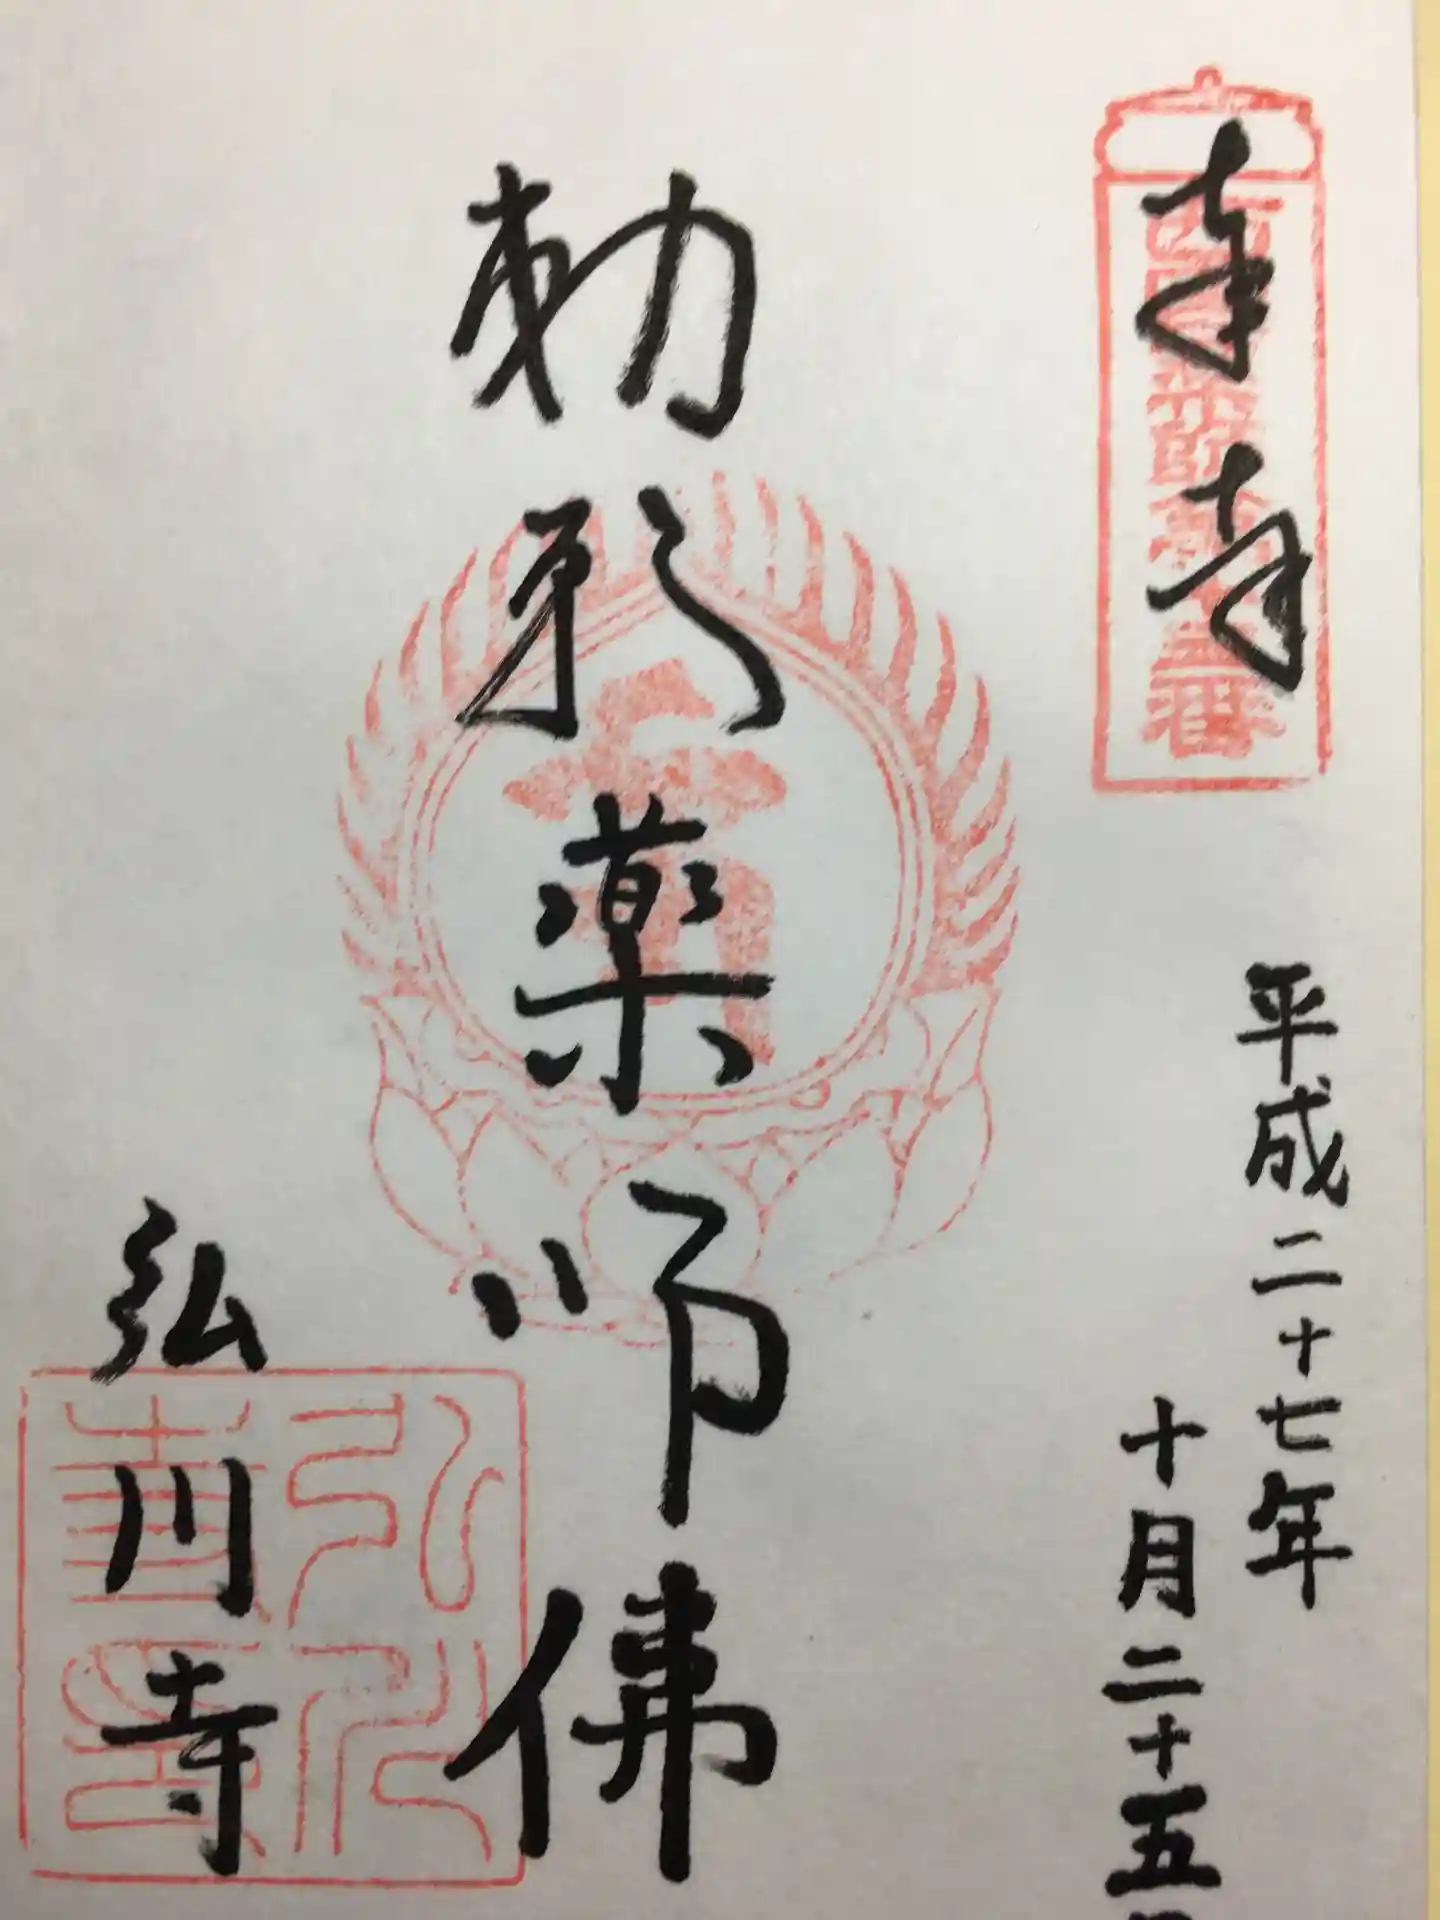 奉拝
平成二十七年
十月二十五日
勅願薬師佛
弘川寺